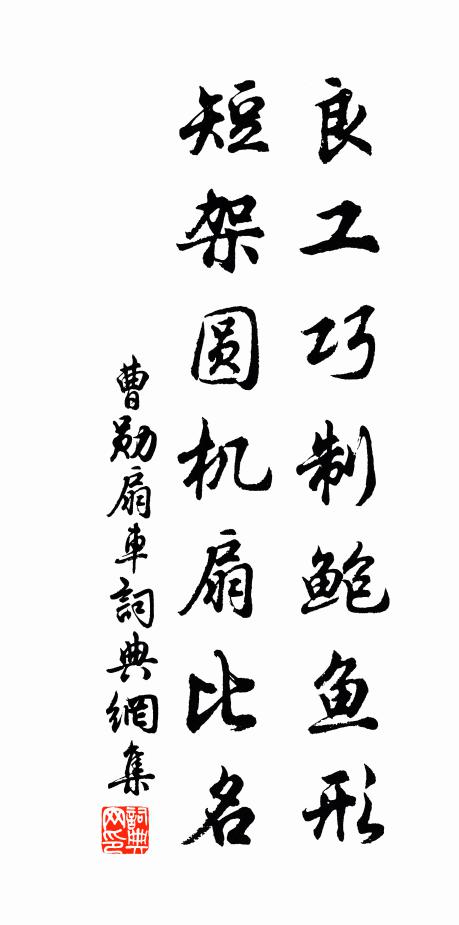 良工巧制鲍鱼形
短架圆机扇比名
曹勛扇車詞典網集
詞典網印